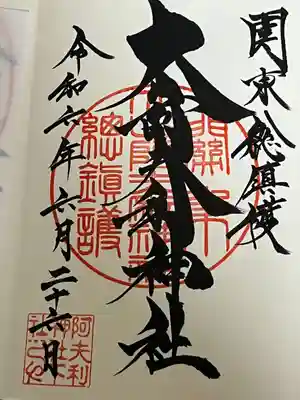 関東総鎮護
大山阿夫利神社
令和六年六月二十六日
總鎮護
阿夫利
神社下
社之印